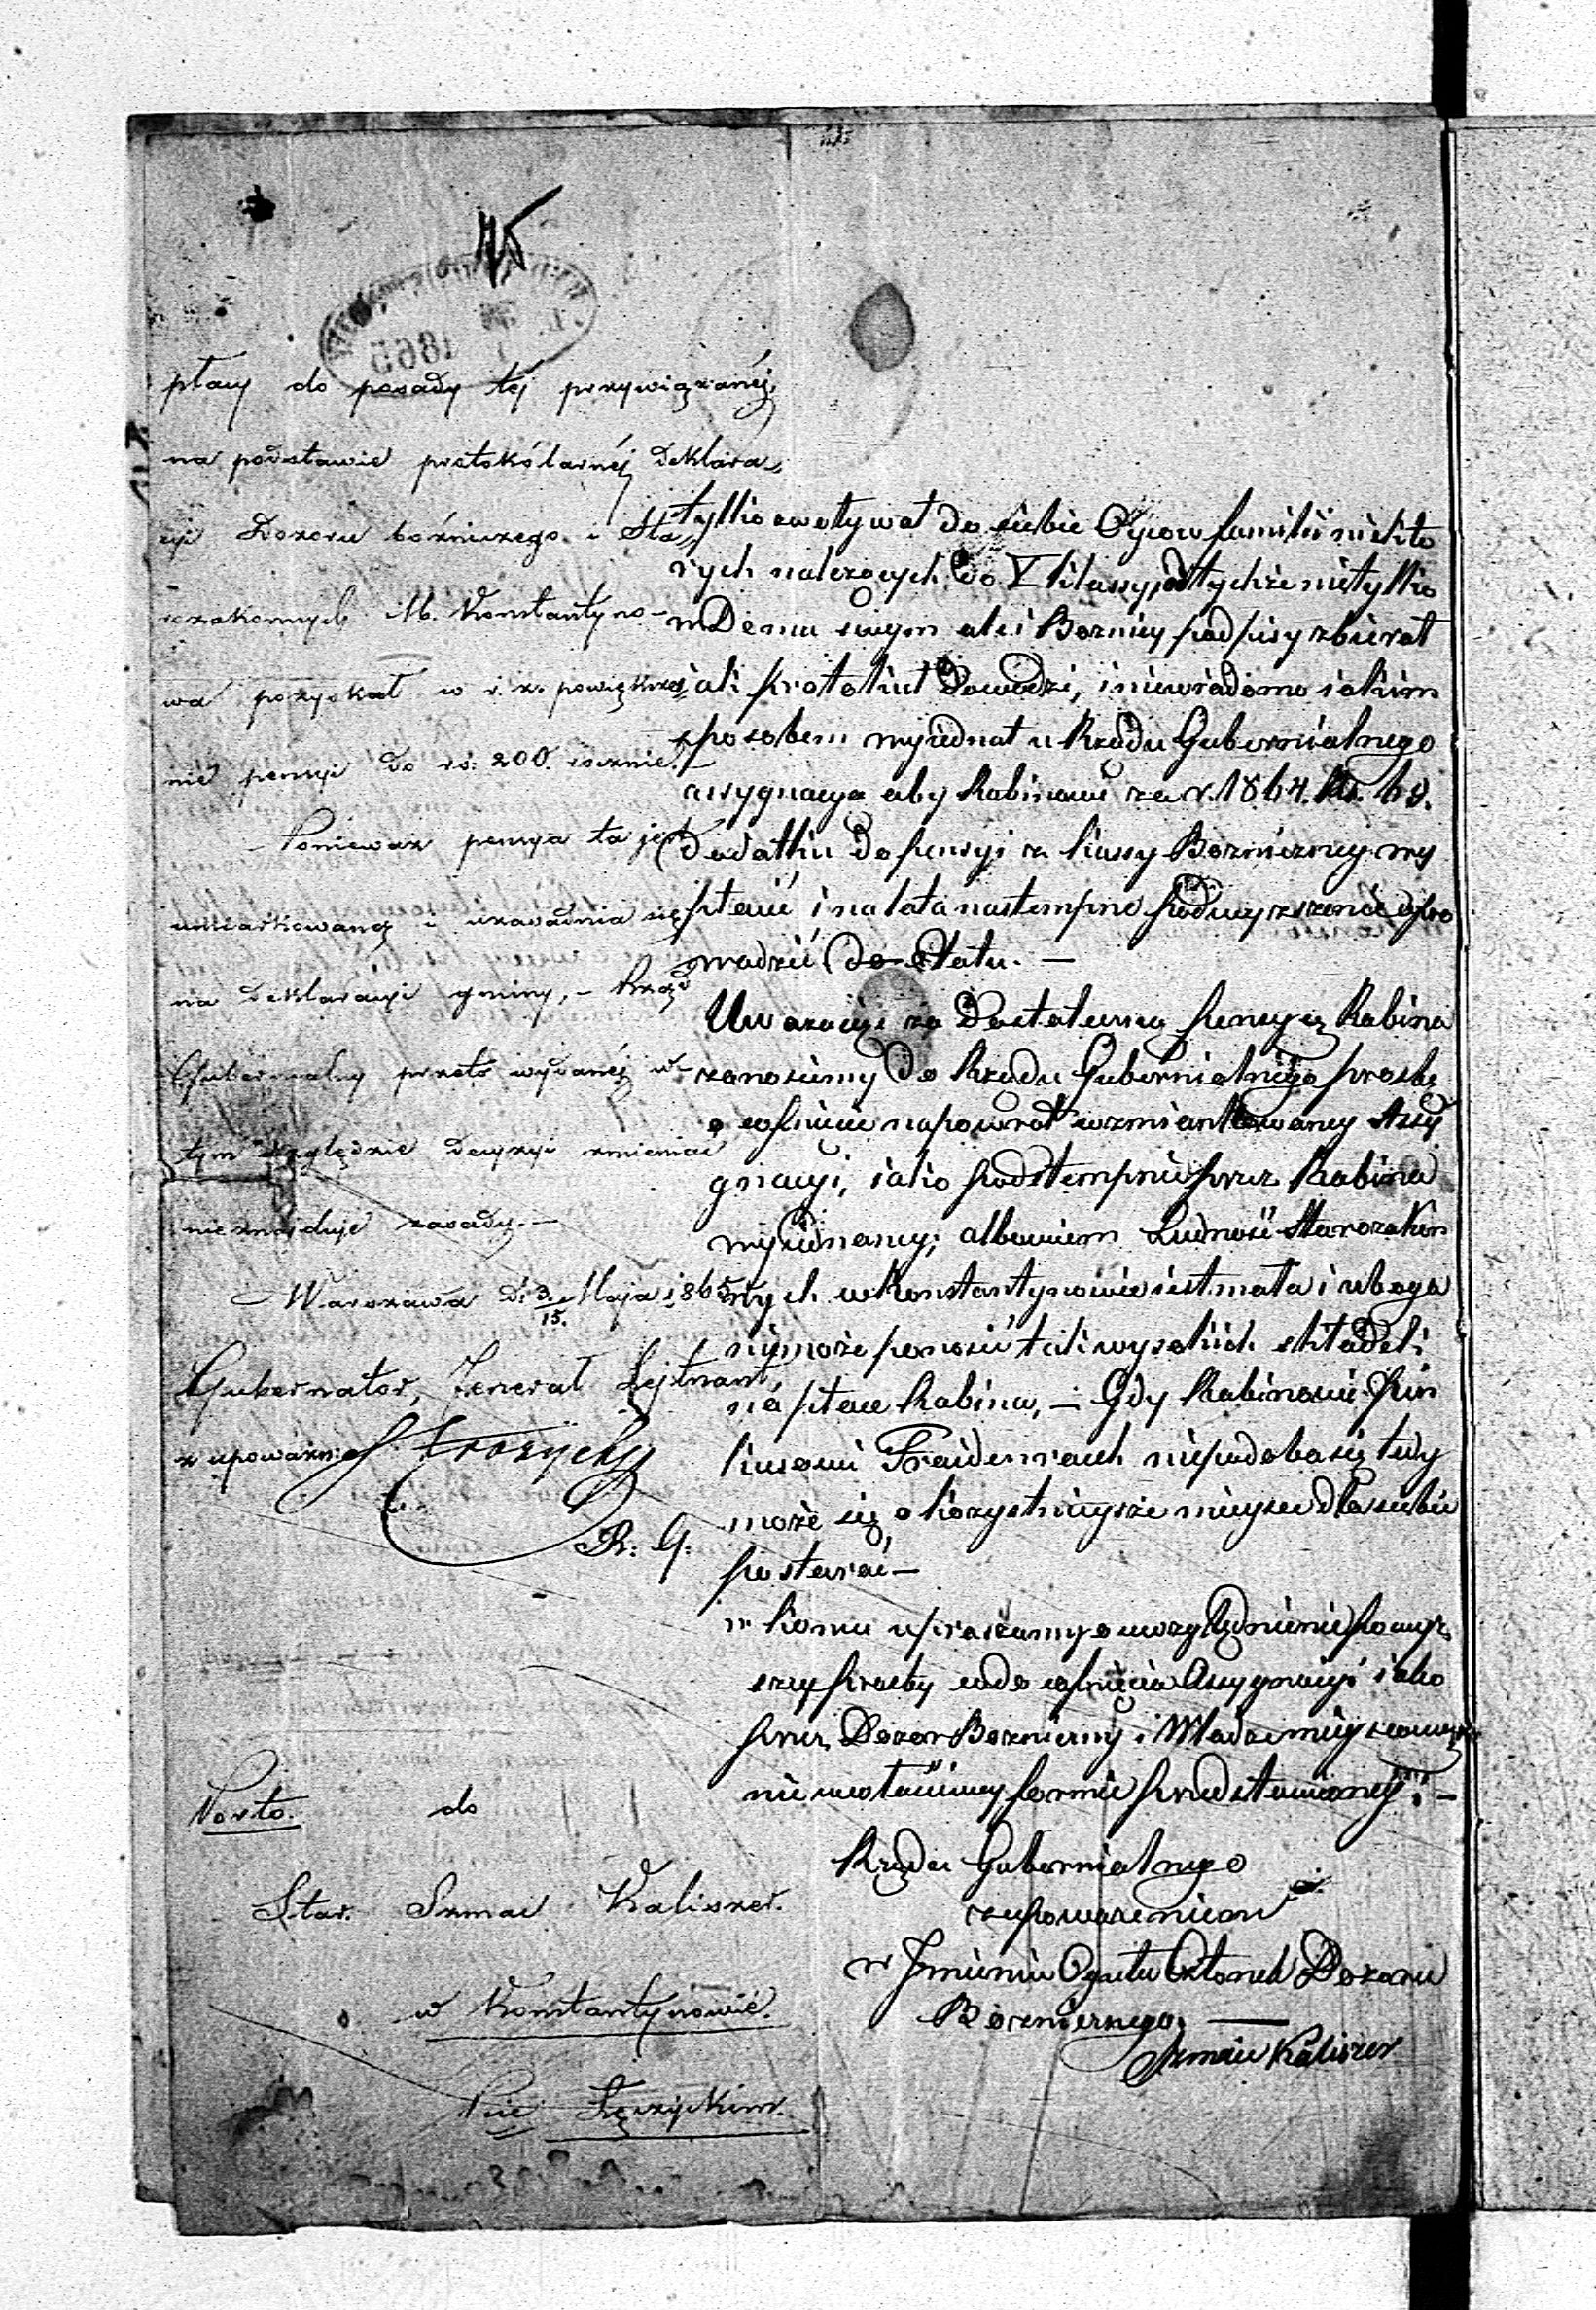 15
1865
płacy do posady tej przywiązanéj,
na podstawie protokólarnéj deklara„
cyi Dozoru bóźniczego i Sta„
rozakonnych M. Konstantyno-
wa pozyskał w r. z. powiększe„
nie pensyi do rs: 200. rocznie.
Ponieważ pensya ta jest
umiarkowaną i uzasadnia się
na deklaracyi gminy, - Rząd
Gubernialny przeto wydanéj w
tym względzie decyzyi zmieniać
nie znajduje zasady.-
Warszawa d: 3/15. Maja 1865
Gubernator, Jenerał Lejtnant,
z upoważn:
R: G.
Porto. do
Star. Szmai Kaliszer.
w Konstantynowie.
Pcie Łęczyckim.
tylko zwoływał do siebie Oyców familii niekto
rych należących do V klassy, od tychże nietylko
w Domu swym ale i Boznicy podpisy zbierał
jak protokuł Dowodzi, i niewiadomo iakim
sposobem wyiednał u Rządu Gubernialnego
assygnacya aby Rabinowi za r. 1864. Rs. 60.
Dodatku do pensyi z kassy Bozniczney wy
płacić i na lata nastempne podwyższenie wpro
wadzić do Etatu. —
Uwazając za Dostateczną pensyą Rabina
zanosiemy do Rządu Gubernialnego prosbę
o cofnięcie napowrót wzmiankowaney Assy
gnacyi, iako podstempnie przez Rabina
wyiednaney; albowiem Ludność Starozakon
nych w Konstantynowie iest mała i uboga
niemoże ponosić tak wysokich składek
na płace Rabina, — Gdy Rabinowi Pin
kusowi Fraidenraich niepodoba się tedy
może się o korzystnieysze mieysce dla siebie
postarać —
w komu upraszamy o uwzględnienie powyż
szey prosby co do cofnięcia Assygnacyi iako
przez Dozor Bozniczny i Władze mieyscową w
niewłaściwey formie przedstawioney; —
Rządu Gubernialnego
z upoważnienia
w Jmieniu Ogółu Członek Dozoru
Bozniczego. —
Szmaie Kaliszer